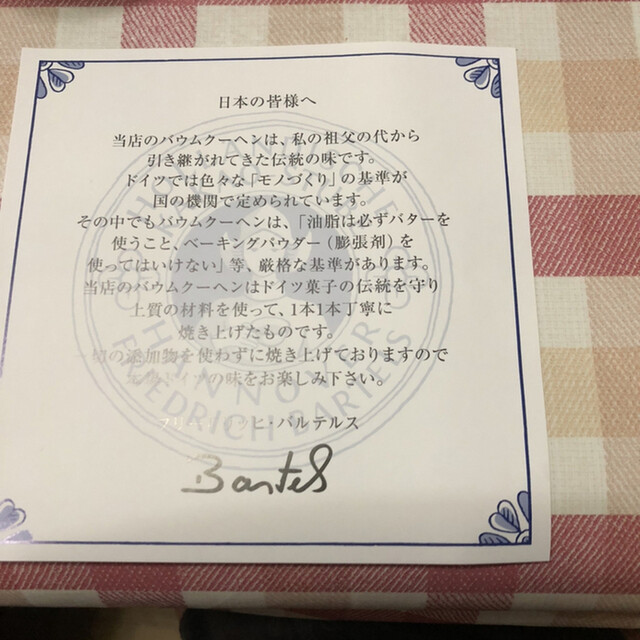 日本の皆様へ
当店のバウムクーヘンは、私の祖父の代から
引き継がれてきた伝統の味です。
ドイツでは色々な「モノづくり」の基準が
国の機関で定められています。
その中でもバウムクーヘンは、「油脂は必ずバターを
使うこと、ベーキングパウダー（膨張剤）を
使ってはいけない」等、厳格な基準があります。
当店のバウムクーヘンはドイツ菓子の伝統を守り
上質の材料を使って、1本1本丁寧に
焼き上げたものです。
一切の添加物を使わずに焼き上げておりますので
ドイツの味をお楽しみ下さい。
フリードリッヒ・バルテルス
Bartels
HOLLÄNDISCHE
HANNOVER
FRIEDRICH BARTELS